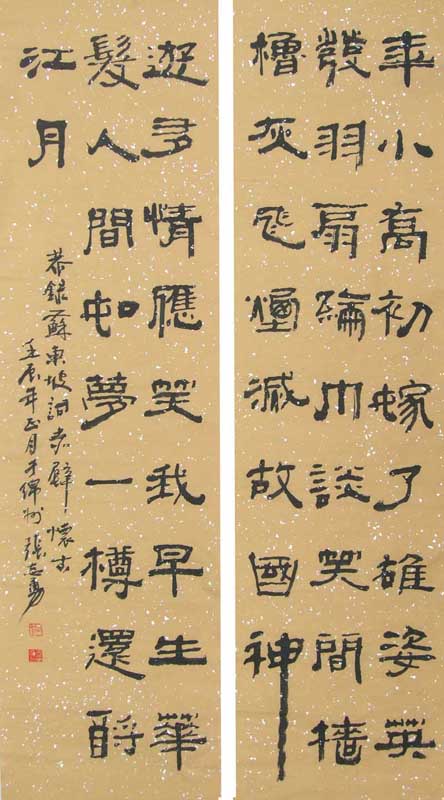 年小喬初嫁了雄姿英
發羽扇綸巾談笑間檣
櫓灰飛煙滅故國神
遊多情應笑我早生華
髮人間如夢一樽還酹
江月
恭錄蘇東坡詞赤壁懷古
壬辰年正月于綿州張志勇